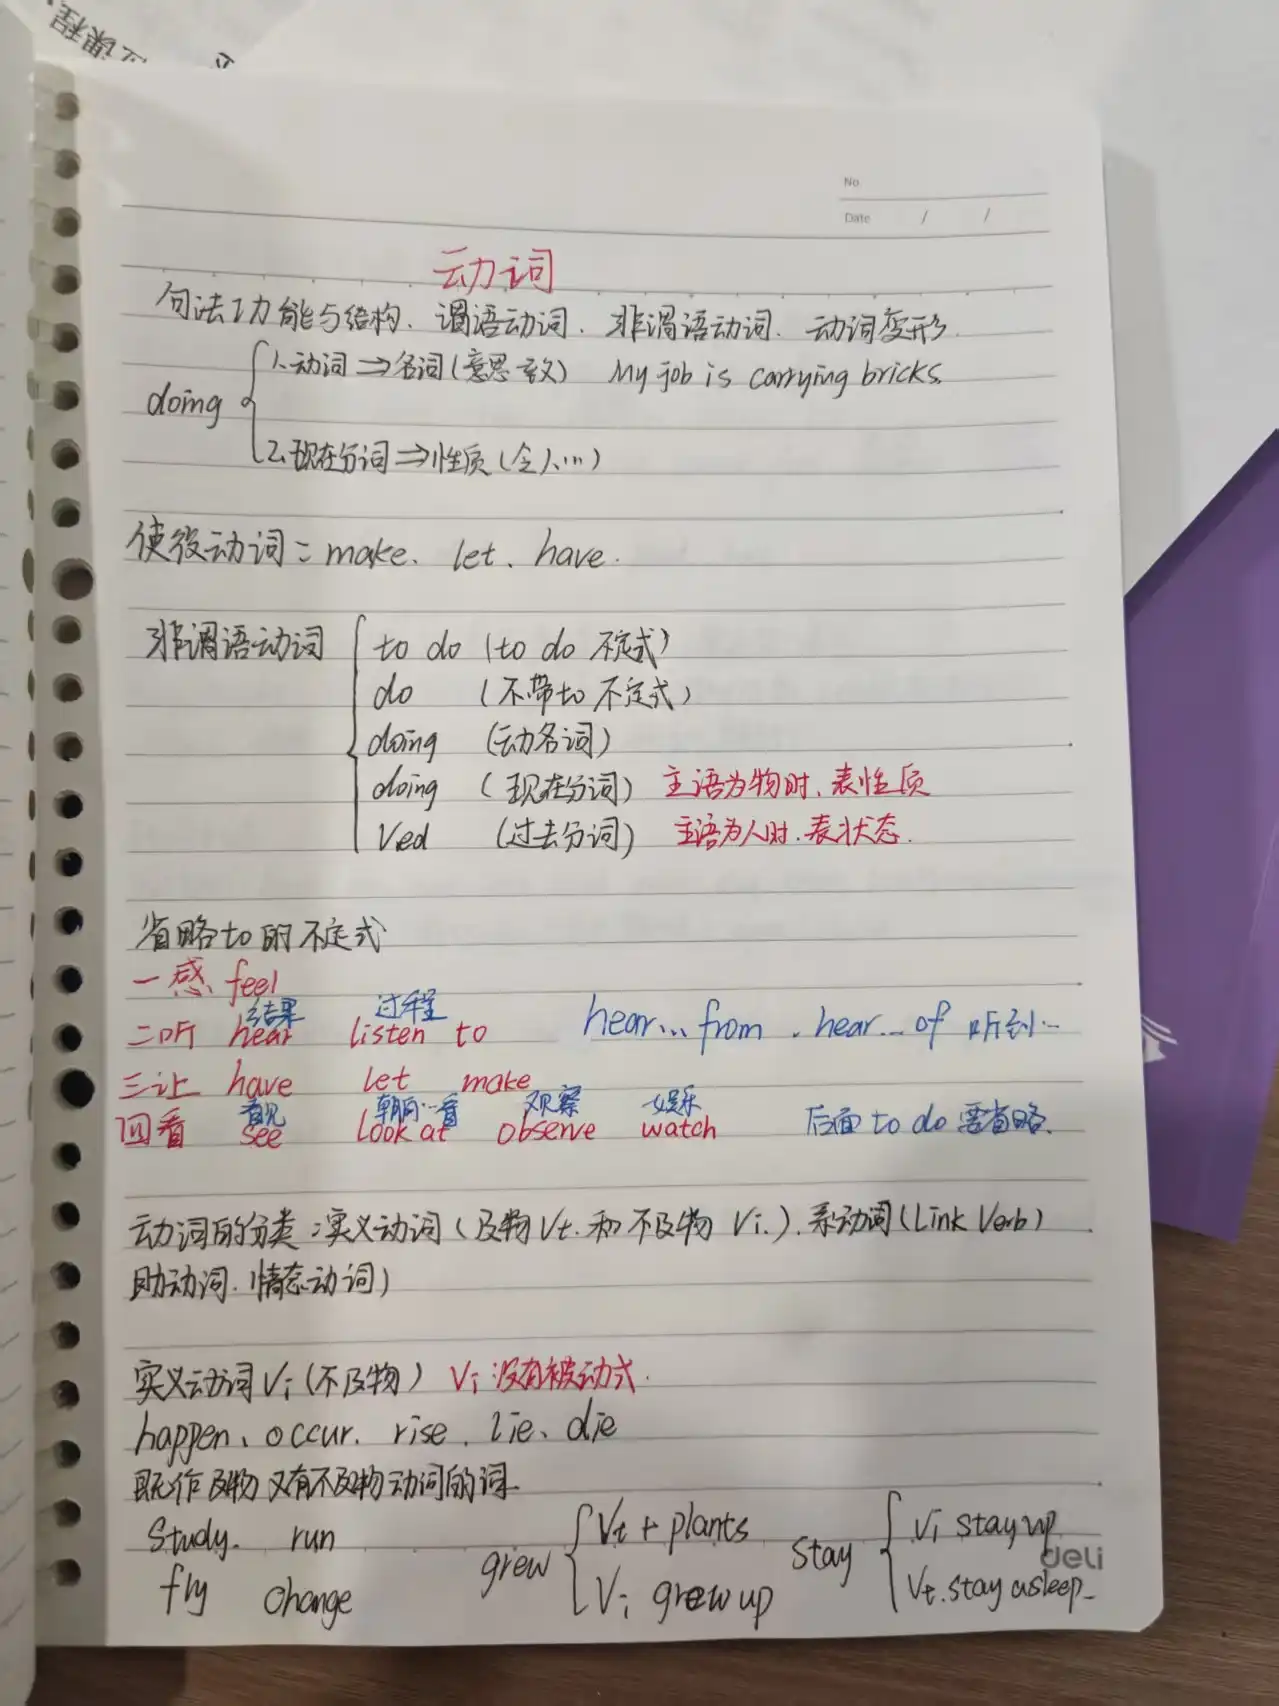 课程,
No
Date / /
动词
句法功能与结构、谓语动词、非谓语动词、动词变形.
doing
1、动词⇒名词(意思一致) My job is carrying bricks.
2、现在分词⇒性质(令人…)
使役动词: make、let、have.
非谓语动词
to do (to do 不定式)
do (不带to 不定式)
doing (动名词)
doing (现在分词) 主语为物时、表性质
Ved (过去分词) 主语为人时、表状态.
省略to的不定式
一感 feel
结果 过程
二听 hear listen to hear… from . hear… of 听到…
三让 have let make
看见 朝向…看 观察 娱乐
四看 see look at observe watch 后面 to do 需省略.
动词的分类:实义动词(及物Vt.和不及物Vi.)、系动词(Link Verb)
助动词、情态动词)
实义动词Vi(不及物) Vi没有被动式.
happen、occur、rise、lie、die
既作及物又有不及物动词的词.
Study. run
fly change
grew
Vt + plants
Vi grew up
stay
Vi stay up
Vt.stay asleep
deli